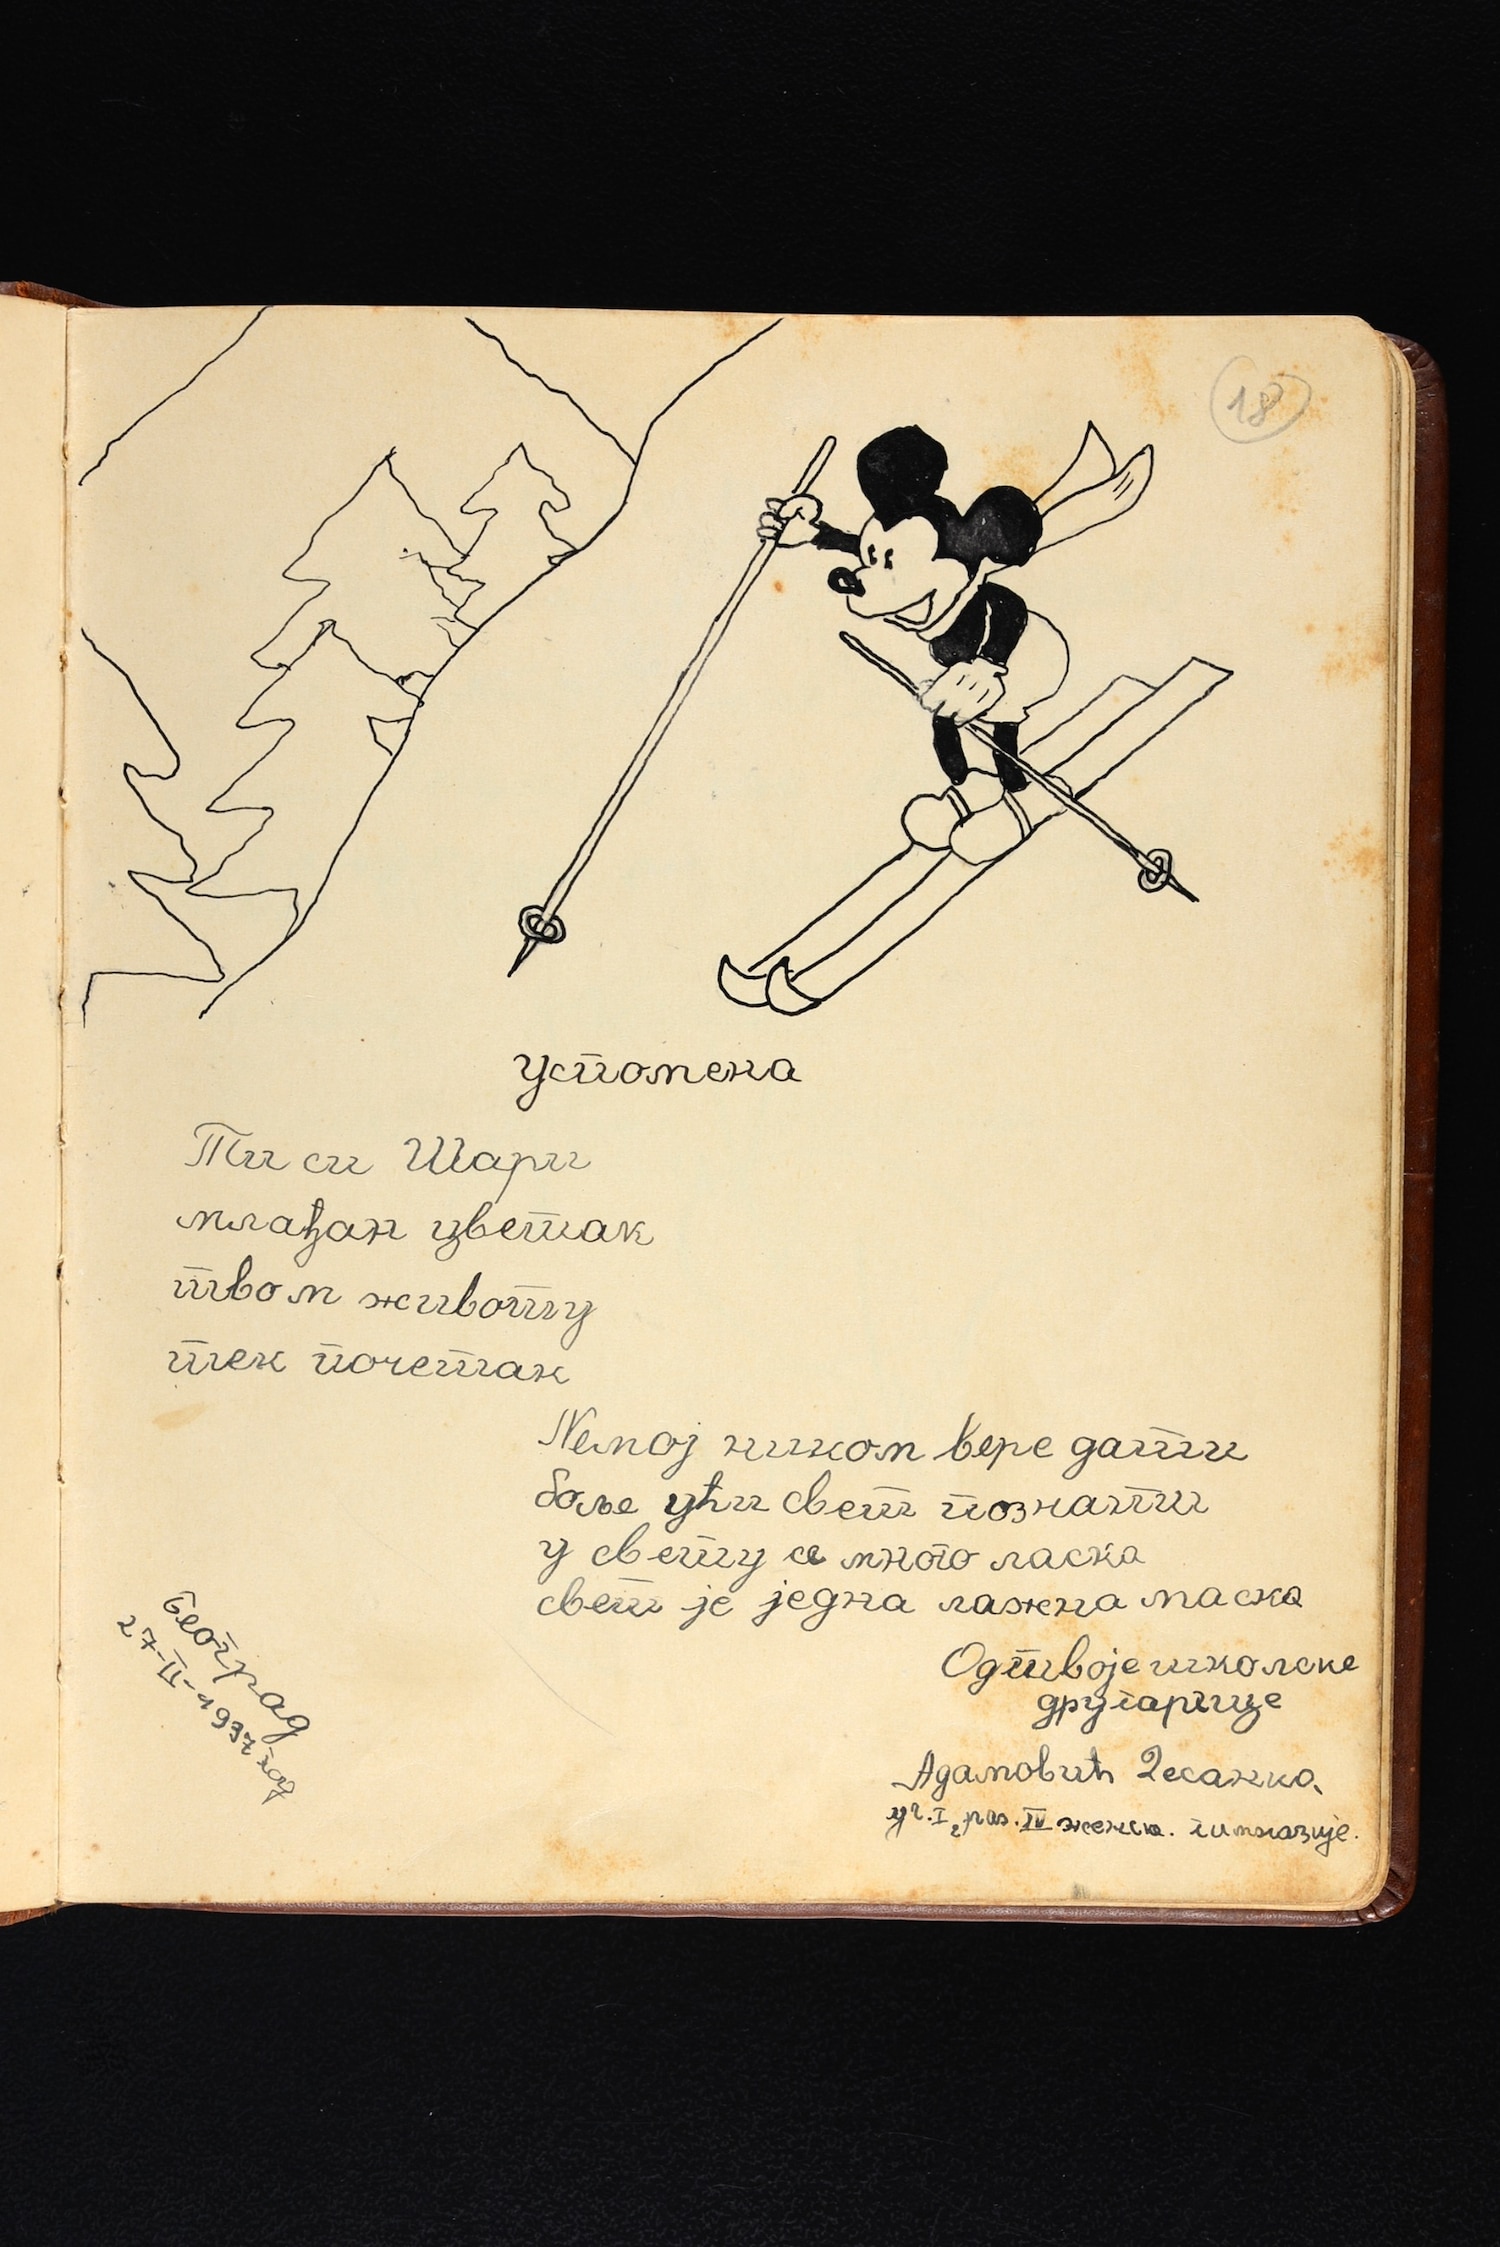 18
Успомена
Ти си Шари
млађан цветак
твом животу
тек почетак
Немој ником вере дати
боље ући свет познати
у свету се много ласка
свет је једна лажна маска
Од твоје школске
другарице
Адамовић Десанка,
уч. I₂ раз. IV женск. гимназије.
Београд
27-II-1937 год